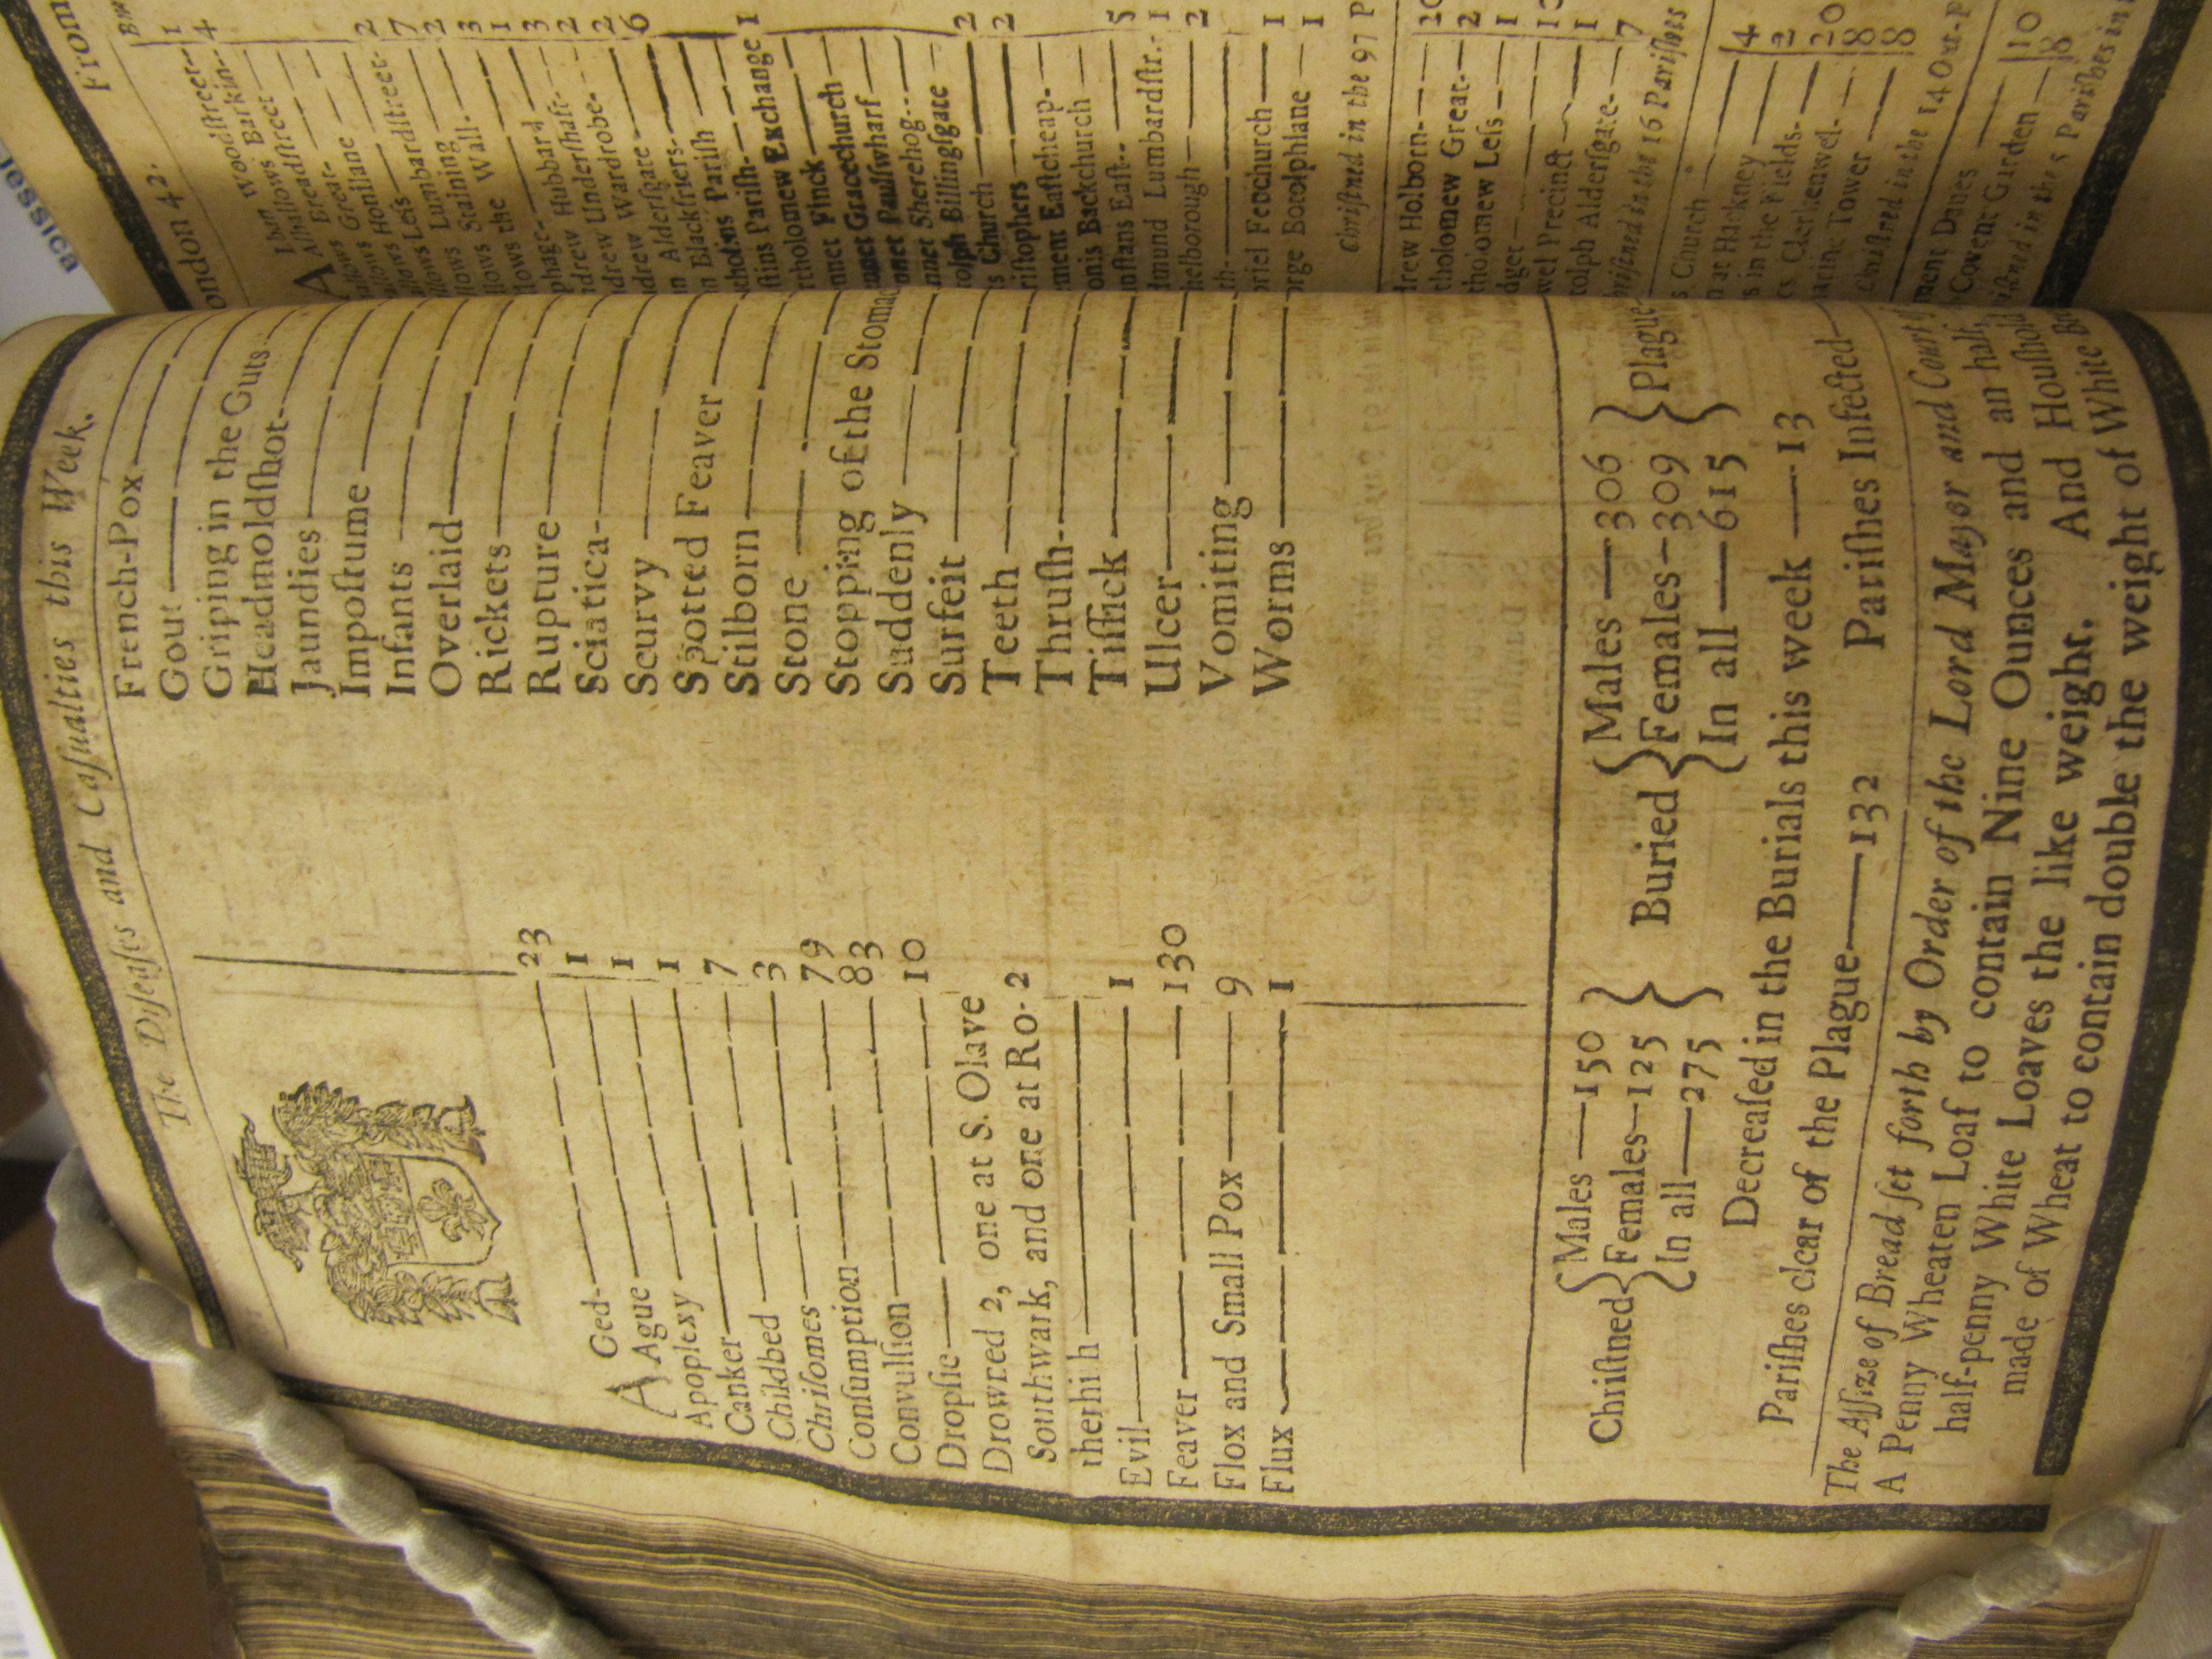 The Diſeaſes and Caſualties this Week.
AGed 23
Ague 1
Apoplexy 1
Canker 1
Childbed 7
Chriſomes 3
Conſumption 79
Convulſion 83
Dropſie 10
Drowned 2, one at S. Olave
Southwark, and one at Ro- 2
therhith
Evil 1
Feaver 130
Flox and Small Pox 9
Flux 1
French-Pox
Gout
Griping in the Guts
Headmoldſhot
Jaundies
Impoſtume
Infants
Overlaid
Rickets
Rupture
Sciatica
Scurvy
Spotted Feaver
Stilborn
Stone
Stopping of the Stomac
Suddenly
Surfeit
Teeth
Thruſh
Tiſſick
Ulcer
Vomiting
Worms
Chriſtned { Males 150 Females 125 In all 275 } Buried { Males 306 Females 309 In all 615 } Plague
Decreaſed in the Burials this week 13
Pariſhes clear of the Plague 132 Pariſhes Infected
The Aſſize of Bread ſet forth by Order of the Lord Mayor and Court of
A Penny Wheaten Loaf to contain Nine Ounces and an half,
half-penny White Loaves the like weight. And Houſhold
made of Wheat to contain double the weight of White
From
London 42.
Woodſtreet 1
Barkin 4
Breadſtreet
Great
Honilane 2
Leſs
Lumbardſtreet 7
Staining 2
the Wall 3
1
phage 3
drew Hubbard 2
drew Underſhaft 2
drew Wardrobe 6
n Alderſgate
n Blackfriers
Pariſh
ſtins Pariſh 1
rtholomew Exchange 1
Finck
nnet Gracechurch
nnet Paulſwharf
nnet Sherehog
tolph Billingſgate
s Church 2
riſtophers 2
ment Eaſtcheap
onis Backchurch
nſtans Eaſt 5
dmund Lumbardſtr. 1
helborough 2
briel Fenchurch 1
orge Botolphlane 1
Chriſtned in the 97 P
drew Holborn 20
tholomew Great 2
tholomew Leſs 1
dget
wel Precinct 1
tolph Alderſgate 7
in the 16 Pariſhes
s Church
n at Hackney 4
s in the Fields 2
Clerkenwel 20
Tower 8
8
in the 14 Out-P
ment Danes
Covent Garden 10
8
in the 5 Pariſhes in
Jessica